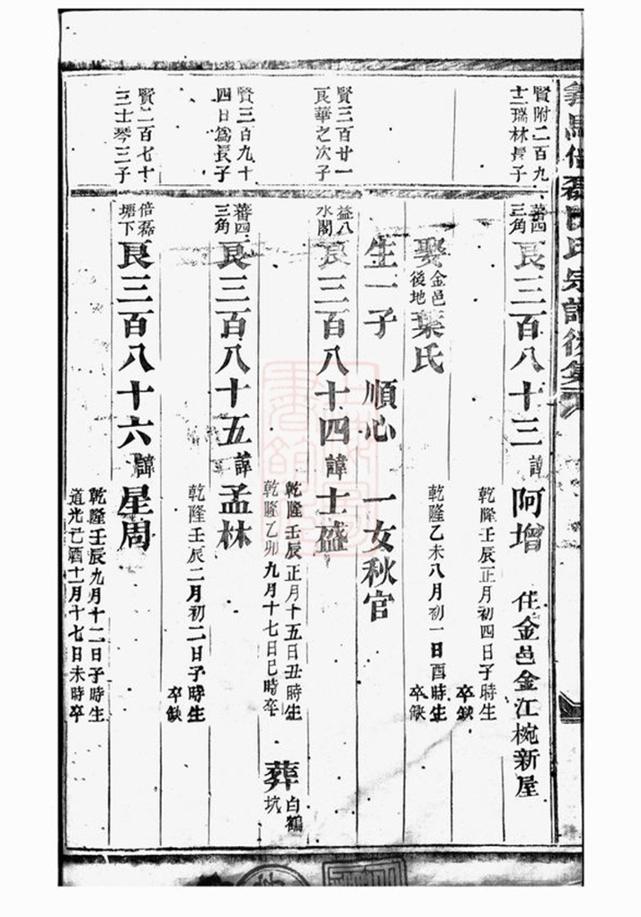 賢附二百九
十二瑞林長子
蕃四
三角
艮三百八十三諱阿增 住金邑金江椀新屋
乾隆壬辰正月初四日子時生
卒缺
娶金邑後地葉氏
乾隆乙未八月初一日酉時生
卒缺
生一子 順心 一女秋官
賢三百廿一
艮華之次子
益八
水閣
艮三百八十四諱士盛
乾隆壬辰正月十五日丑時生
乾隆乙卯九月十七日巳時卒
葬白鶴坑
賢三百九十
四日爲長子
蕃四
三角
艮三百八十五諱孟林
乾隆壬辰二月初二日子時生
卒缺
賢二百七十
三士琴三子
倍磊
塘下
艮三百八十六諱星周
乾隆壬辰九月十二日子時生
道光己酉十一月十七日未時卒